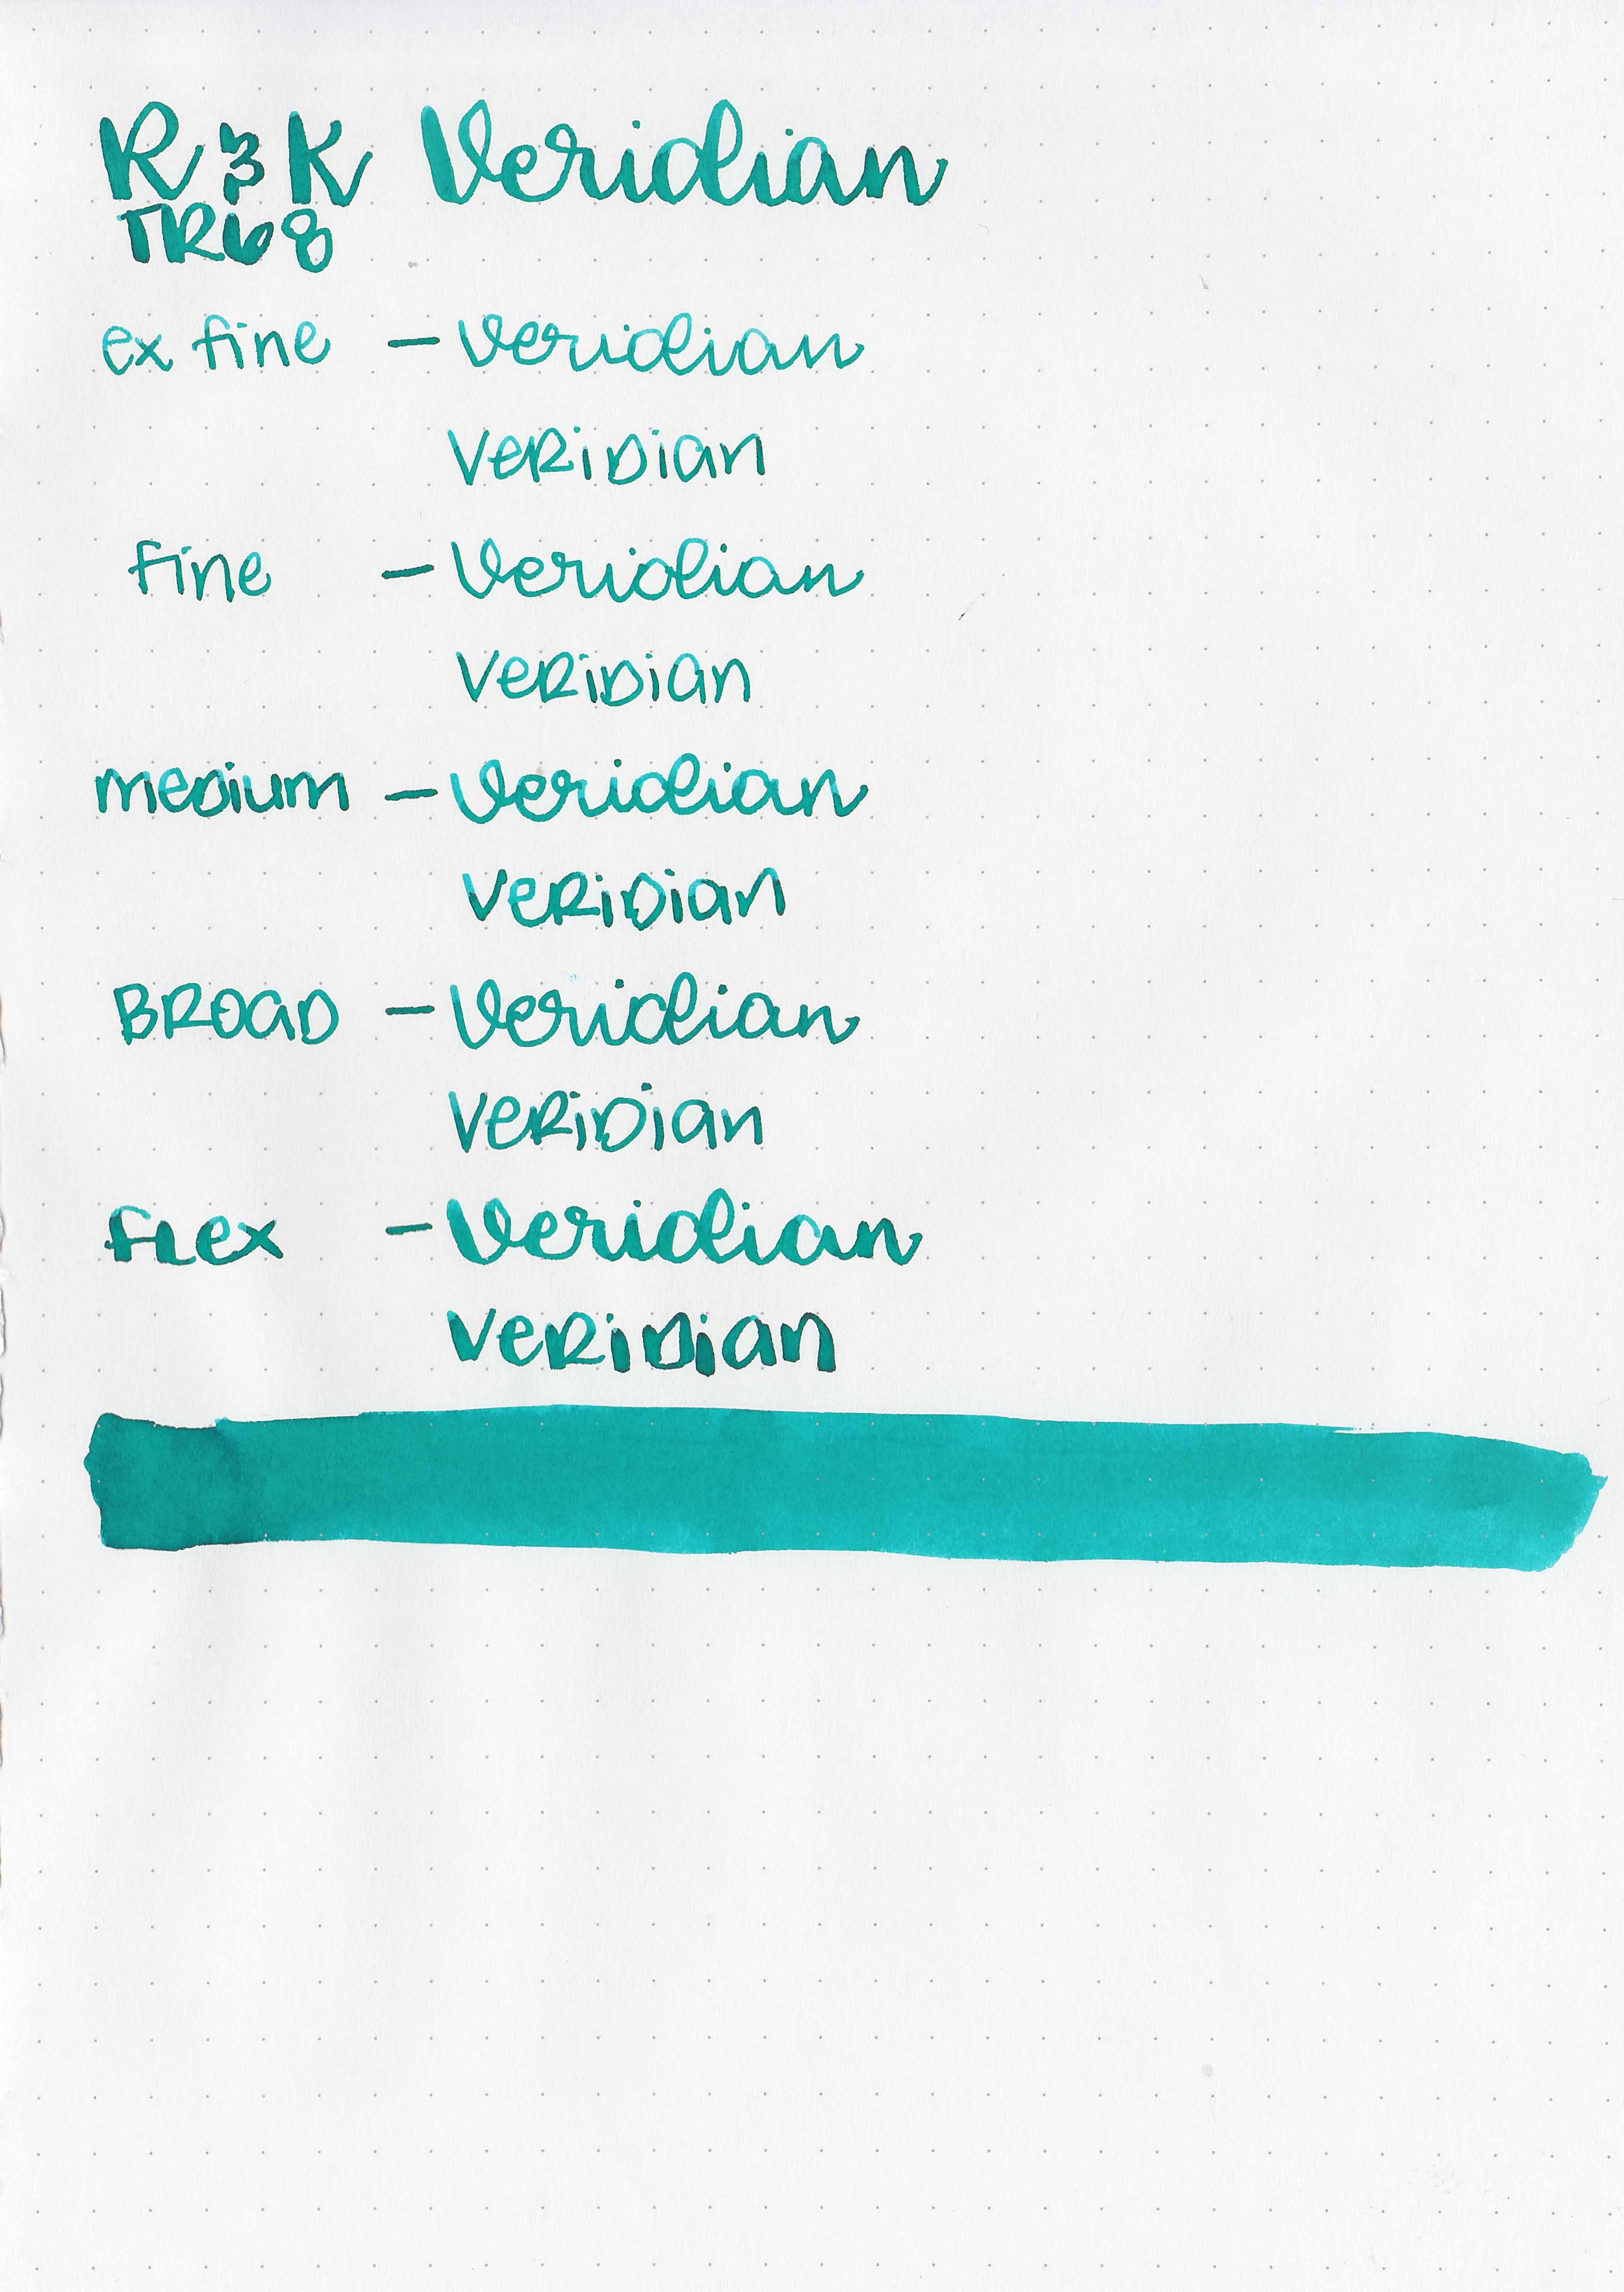 R & K Veridian
TR68
ex fine - Veridian
VeRiDian
fine - Veridian
VeRiDian
meDium - Veridian
VeRiDian
BROaD - Veridian
VeRiDian
fLex - Veridian
VeRiDian